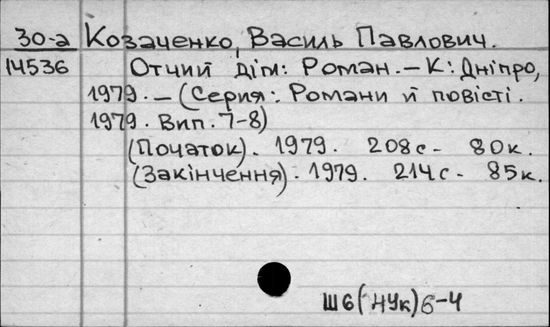 30-а Козаченко, Василь Павлович.
14536 Отчий дім: Роман. – К: Дніпро,
1979. – (Серия: Романи й повісті.
1979. Вип. 7-8)
(Початок). 1979. 208с- 80к.
(Закінчення). 1979. 214с- 85к.
Ш6(4Ук)6-4